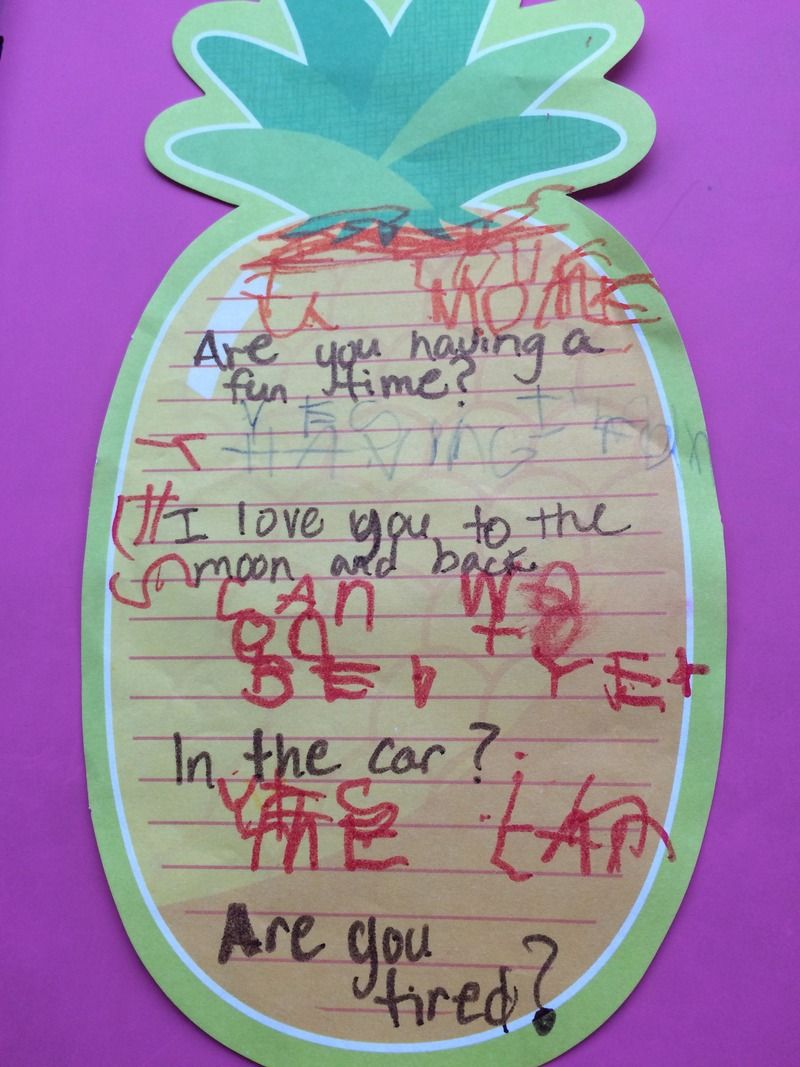 MOME
Are you having a
fun time?
YES I
HAVING FUN
I love you to the
moon and back
CAN WO
GO TO
BED YET
In the car?
YES
ME CAN
Are you
tired?